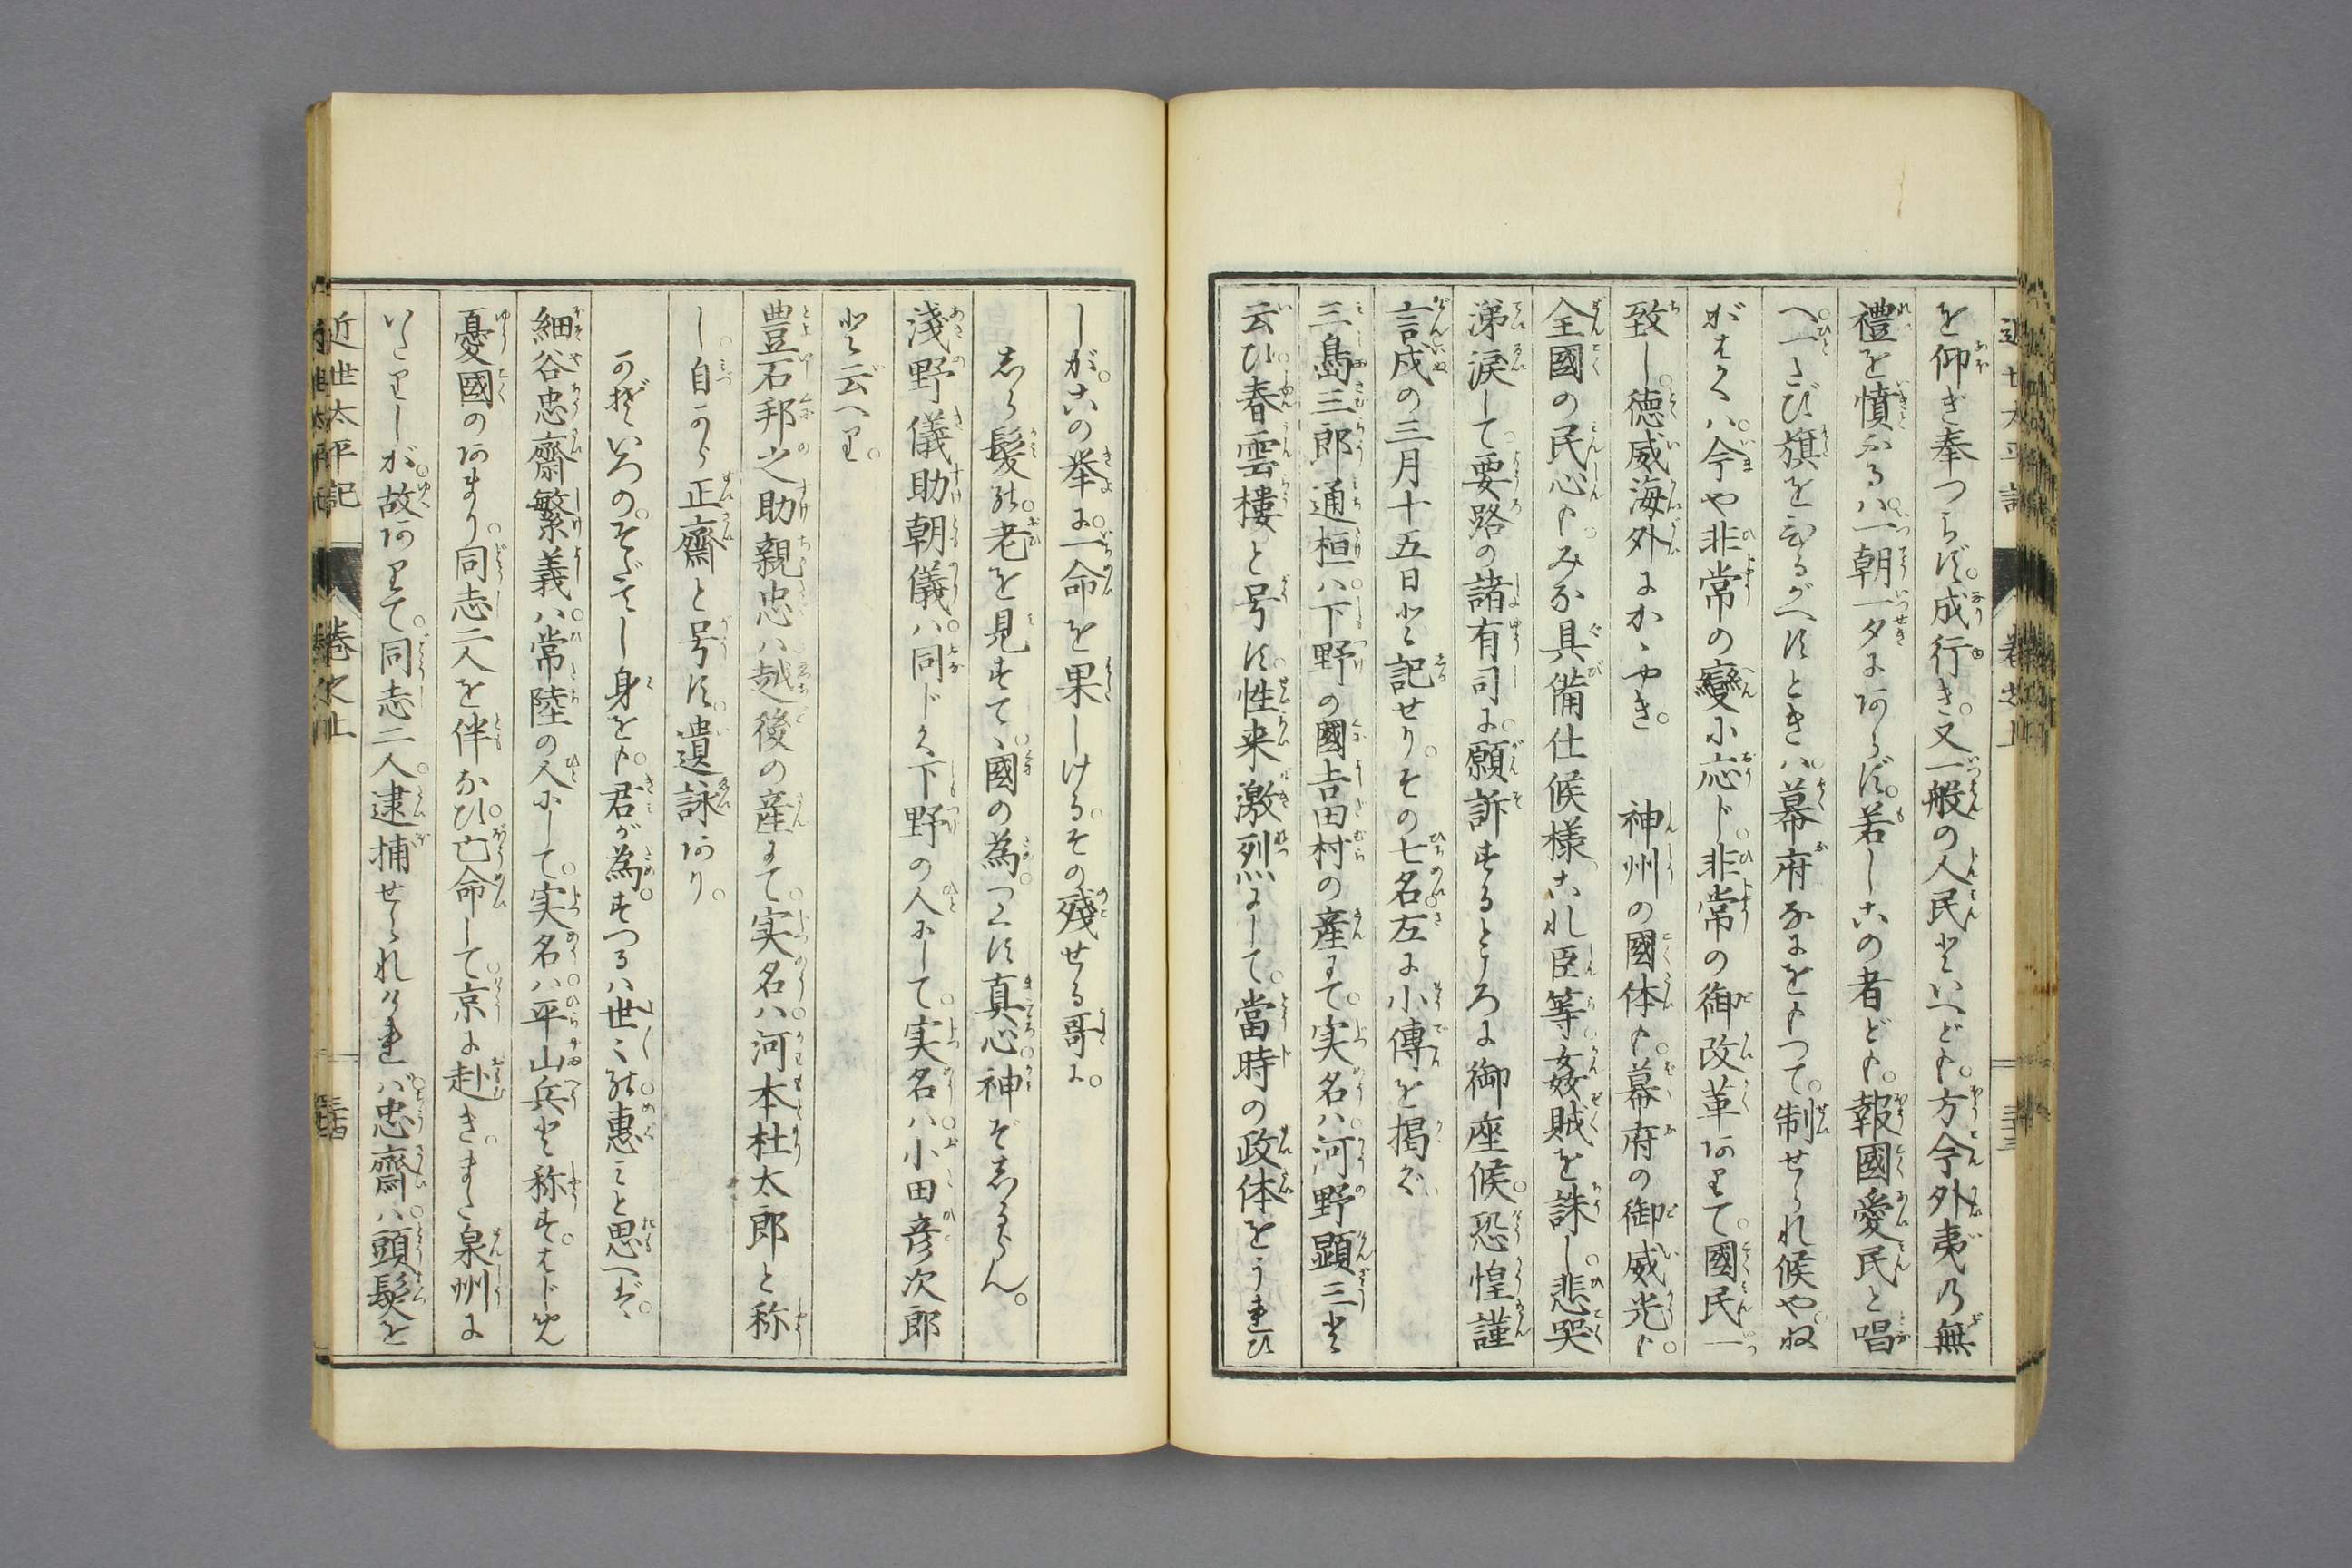 を仰ぎ奉つらず。成行き。又一般の人民といへども。方今外夷乃無
禮を憤ふるハ。一朝一夕にあらず。若しこの者ども。報國愛民と唱
へ。一たび旗をひるがへすときハ。幕府なにをもつて。制せられ候や。ね
がわくハ。今や非常の變に応じ。非常の御改革ありて。國民一
致し。徳威海外にかゝやき。　神州の國体も。幕府の御威光も。
全國の民心も。みな具備仕候様。これ臣等。姦賊を誅し。悲哭
涕涙して。要路の諸有司に。願訴するところに御座候。恐惶謹
言戌の三月十五日と記せり。その七名左に小傳を掲ぐ
三島三郎通桓ハ。下野の國吉田村の産にて。実名ハ。河野顕三と
云ひ。春雲樓と号す。性来激烈にして。當時の政体をうれひ
しが。この挙に。一命を果しける。その殘せる哥に。
しら髪能。老を見すて丶。國の為。つくす真心。神ぞしるらん。
淺野儀助朝儀ハ。同じく下野の人にして。実名ハ。小田彦次郎
と云へり。
豊石邦之助親忠ハ。越後の産にて。実名ハ。河本杜太郎と称
し。自から正齋と号す。遺詠あり。
かぞいろの。そだてし身をも。君が為。すつるハ世々能。惠みと思へば。
細谷忠齋繁義ハ。常陸の人にして。実名ハ。平山兵と称す。はじめ
憂國のあまり。同志二人を伴なひ。亡命して。京に赴き。また泉州に
いたりしが。故ありて。同志二人。逮捕せられけれバ。忠齋ハ。頭髮を
近世太平記　卷之上　三十四
近世太平記　卷之上　三十三